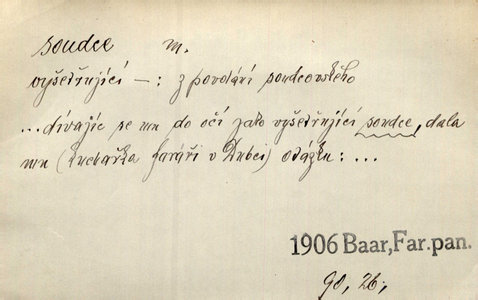 soudce m.
vyšetřující —: z povolání soudcovského
...dívajíc se mu do očí jako vyšetřující soudce, dala
mu (kuchařka faráři v Dubci) otázku: ...
1906 Baar, Far. pan.
90, 26;